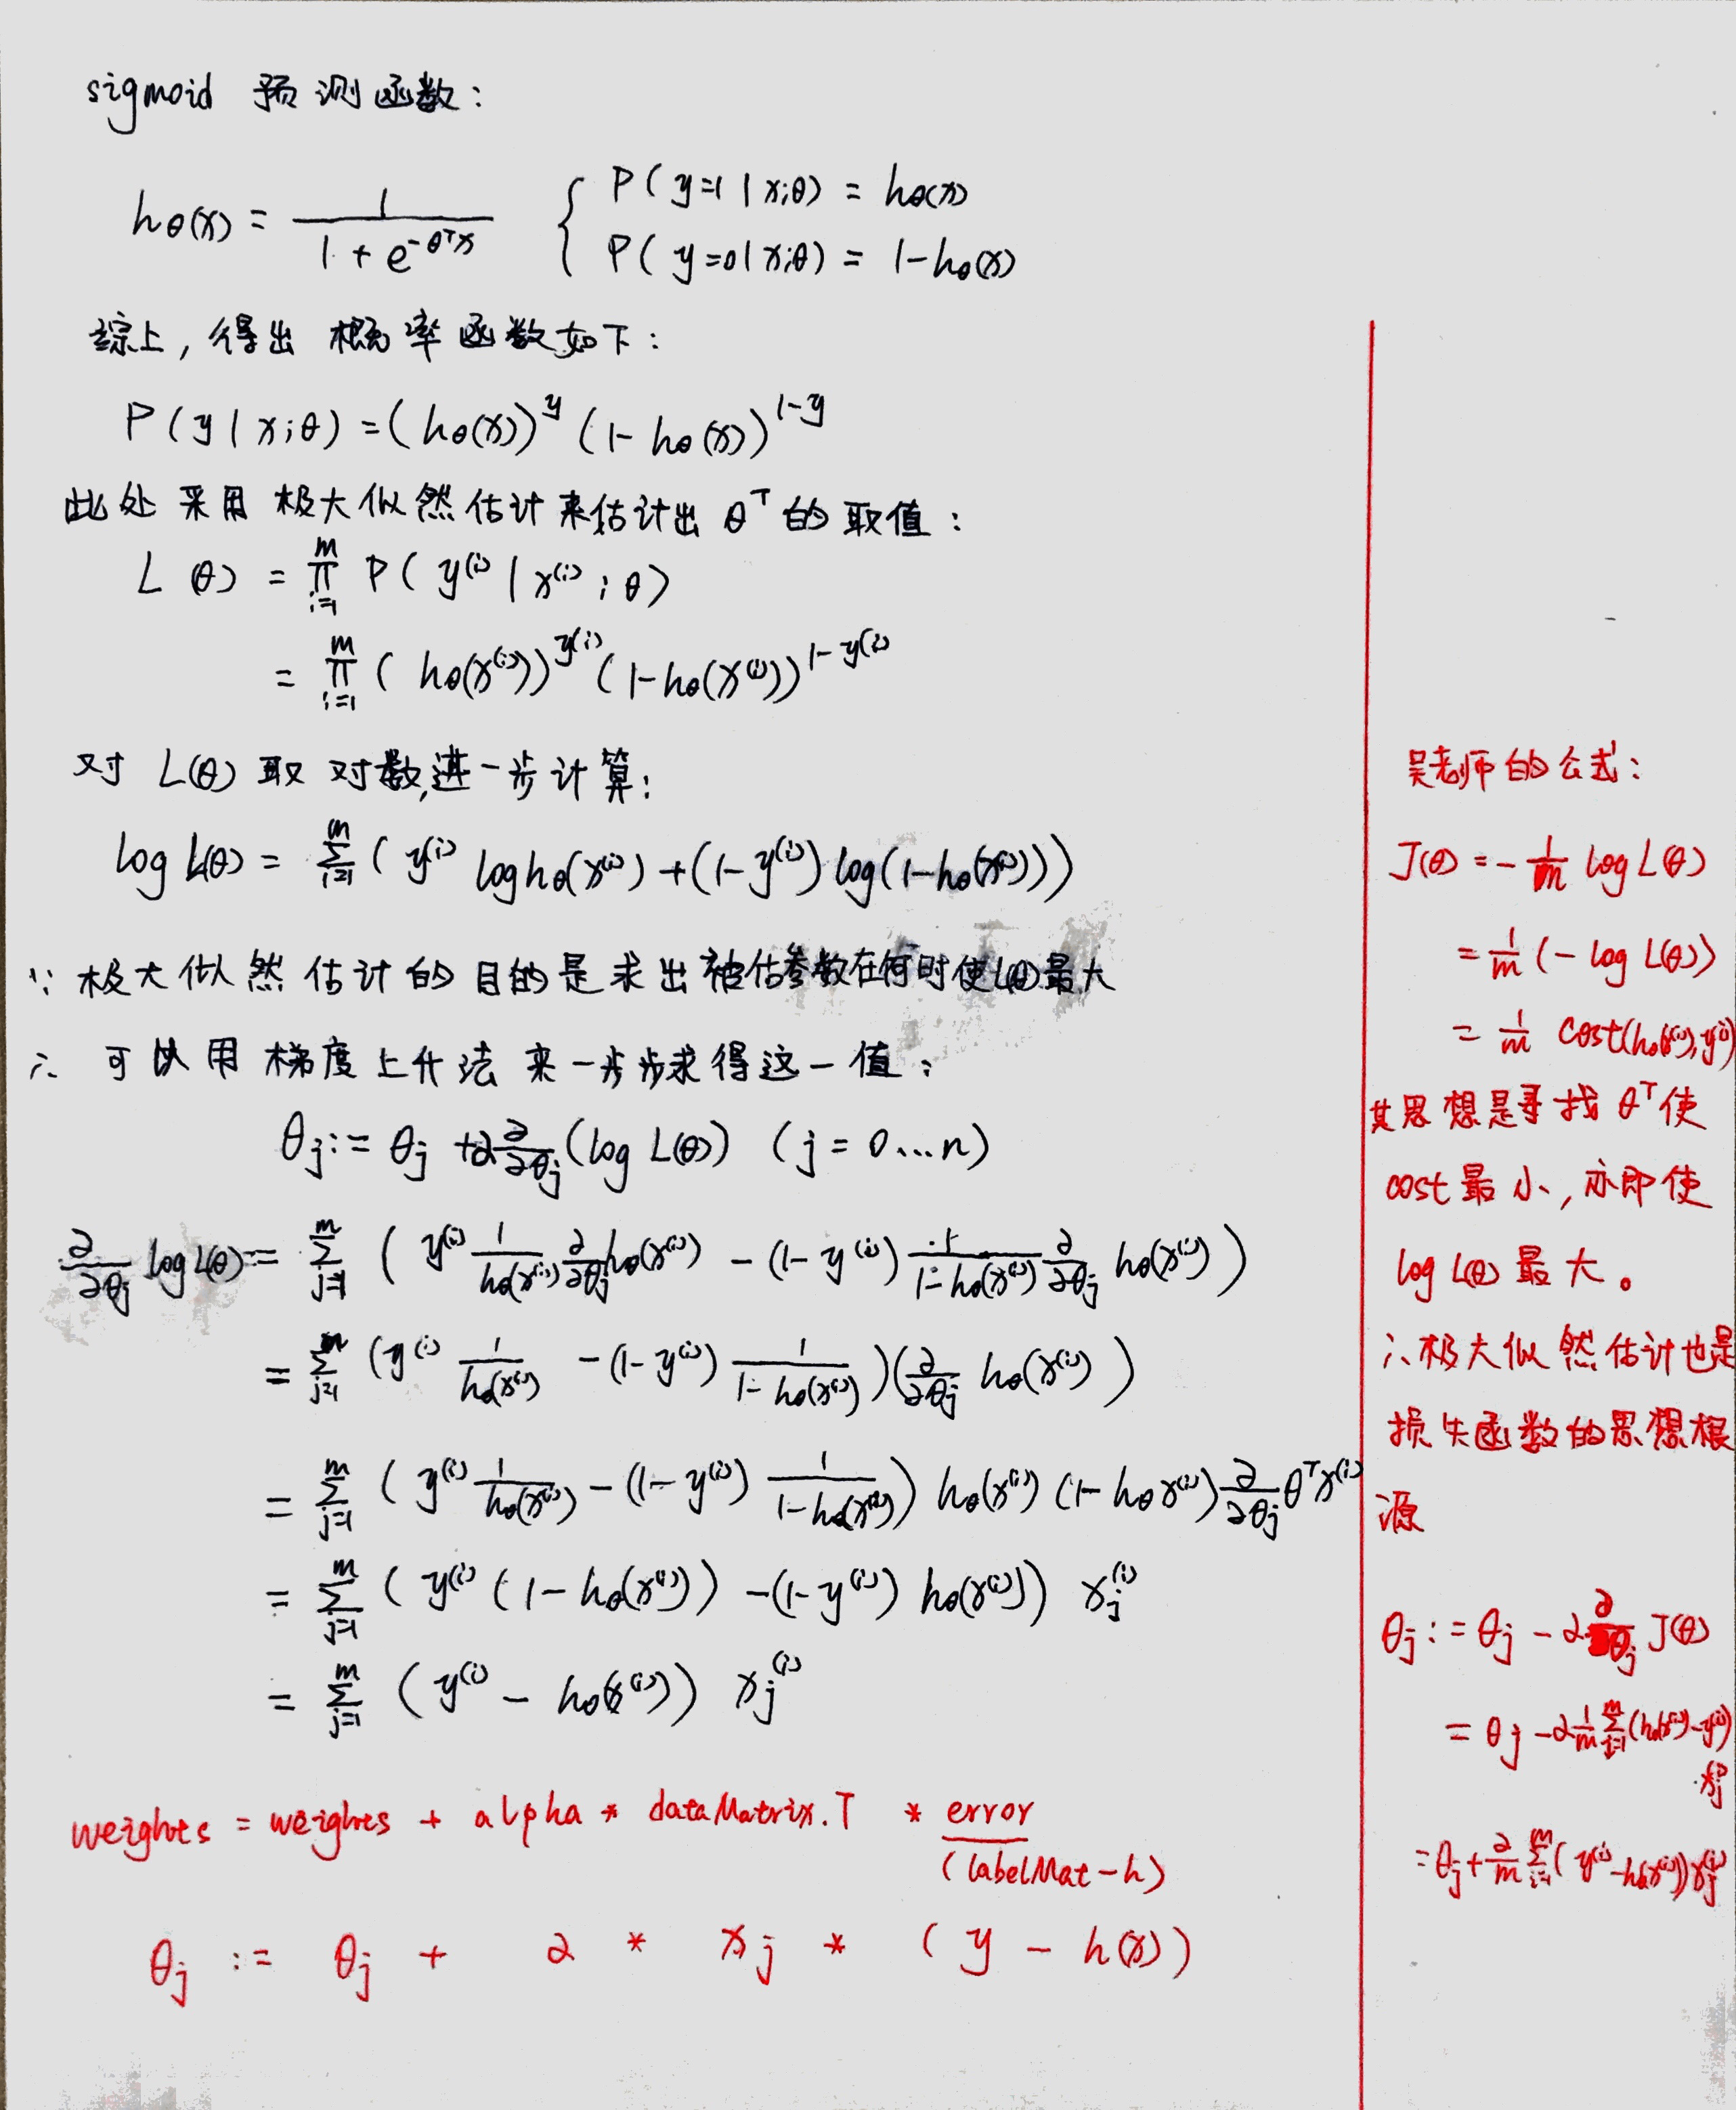 sigmoid 预测函数:
hθ(x) = 1 / (1 + e^(-θᵀx))  { P(y=1|x;θ) = hθ(x)
P(y=0|x;θ) = 1-hθ(x)
综上, 得出 概率函数如下:
P(y|x;θ) = (hθ(x))^y (1-hθ(x))^(1-y)
此处采用极大似然估计来估计出 θᵀ 的取值:
L(θ) = ∏_{i=1}^{m} P(y⁽ⁱ⁾|x⁽ⁱ⁾;θ)
= ∏_{i=1}^{m} (hθ(x⁽ⁱ⁾))^(y⁽ⁱ⁾) (1-hθ(x⁽ⁱ⁾))^(1-y⁽ⁱ⁾)
对 L(θ) 取对数,进一步计算:
log L(θ) = ∑_{i=1}^{m} (y⁽ⁱ⁾ log hθ(x⁽ⁱ⁾) + (1-y⁽ⁱ⁾) log(1-hθ(x⁽ⁱ⁾)))
∵ 极大似然估计的目的是求出被估参数在何时使L(θ)最大
∴ 可以用梯度上升法来一步步求得这一值:
θj := θj + α ∂/∂θj (log L(θ)) (j = 0...n)
∂/∂θj log L(θ) = ∑_{j=1}^{m} (y⁽ⁱ⁾ 1/hθ(x⁽ⁱ⁾) ∂/∂θj hθ(x⁽ⁱ⁾) - (1-y⁽ⁱ⁾) 1/(1-hθ(x⁽ⁱ⁾)) ∂/∂θj hθ(x⁽ⁱ⁾))
= ∑_{j=1}^{m} (y⁽ⁱ⁾ 1/hθ(x⁽ⁱ⁾) - (1-y⁽ⁱ⁾) 1/(1-hθ(x⁽ⁱ⁾)))(∂/∂θj hθ(x⁽ⁱ⁾))
= ∑_{j=1}^{m} (y⁽ⁱ⁾ 1/hθ(x⁽ⁱ⁾) - (1-y⁽ⁱ⁾) 1/(1-hθ(x⁽ⁱ⁾))) hθ(x⁽ⁱ⁾) (1-hθ x⁽ⁱ⁾) ∂/∂θj θᵀx⁽ⁱ⁾
= ∑_{j=1}^{m} (y⁽ⁱ⁾ (1-hθ(x⁽ⁱ⁾)) - (1-y⁽ⁱ⁾) hθ(x⁽ⁱ⁾)) xj⁽ⁱ⁾
= ∑_{j=1}^{m} (y⁽ⁱ⁾ - hθ(x⁽ⁱ⁾)) xj⁽ⁱ⁾
weights = weights + alpha * dataMatrix.T * error
(labelMat-h)
θj := θj + α * xj * (y - h(x))
吴老师的公式:
J(θ) = -1/m log L(θ)
= 1/m (-log L(θ))
= 1/m cost(hθ(x⁽ⁱ⁾), y⁽ⁱ⁾)
其思想是寻找 θᵀ 使
cost 最小, 亦即使
log L(θ) 最大。
∴ 极大似然估计也是
损失函数的思想根
源
θj := θj - α ∂/∂θj J(θ)
= θj - α 1/m ∑_{j=1}^{m} (hθ(x⁽ⁱ⁾)-y⁽ⁱ⁾)
·xj⁽ⁱ⁾
= θj + α/m ∑_{i=1}^{m} (y⁽ⁱ⁾-hθ(x⁽ⁱ⁾)) xj⁽ⁱ⁾